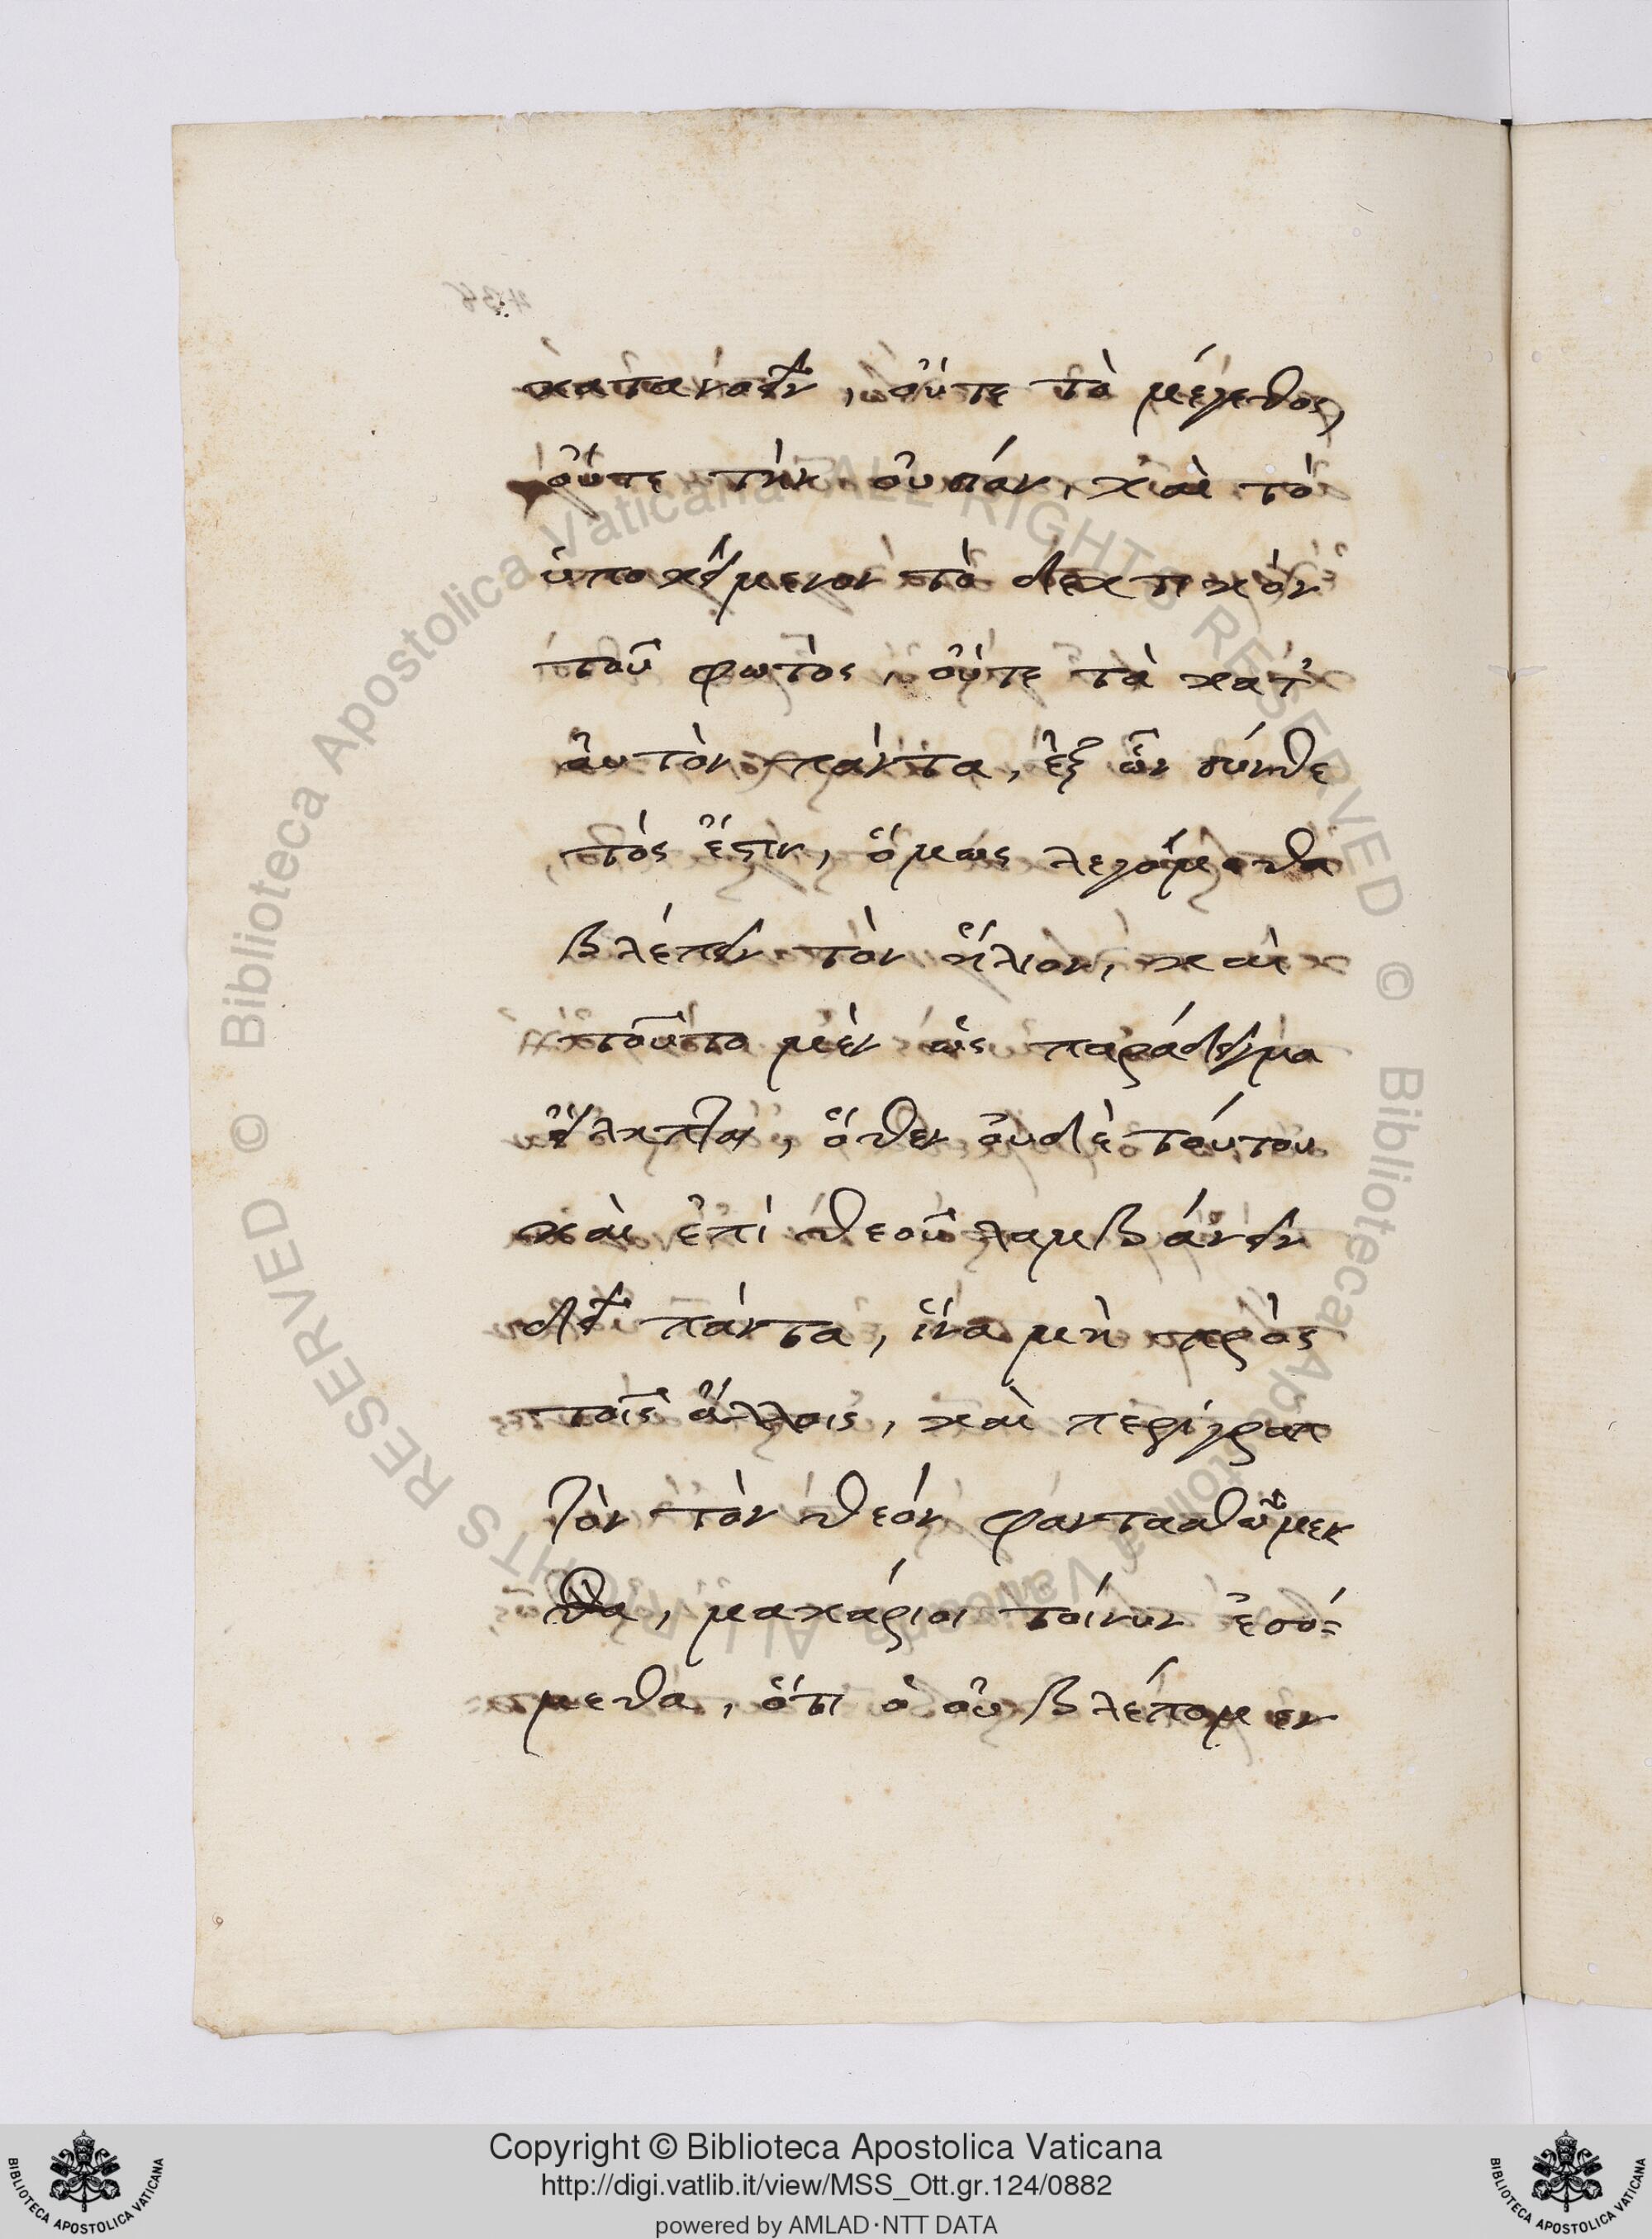 κατανοεῖν, οὔτε τὸ μέγεθος,
οὔτε τὴν οὐσίαν, καὶ τὸ
ὑποκείμενον τὸ δεκτικὸν
τοῦ φωτὸς, οὔτε τὰ κατ'
αὐτὸν πάντα, ἐξ ὧν σύνθε
τός ἐστιν, ὅμως λεγόμεθα
βλέπειν τὸν ἥλιον, καὶ
τοῦτο μὲν ὡς παράδειγμα
εἴληπται, ὅθεν οὐδὲ τούτου
καὶ ἐπὶ θεοῦ λαμβάνειν
δεῖ πάντα, ἵνα μὴ πρὸς
τοῖς ἄλλοις, καὶ περίγραπ
τὸν τὸν θεόν φαντασθῶμεν
μακάριοι τοίνυν ἐσό=
μεθα, ὅτι ὁ οὐ βλέπομεν
Biblioteca Apostolica Vaticana ALL RIGHTS RESERVED ©
Biblioteca Apostolica Vaticana ALL RIGHTS RESERVED ©
Copyright © Biblioteca Apostolica Vaticana
http://digi.vatlib.it/view/MSS_Ott.gr.124/0882
powered by AMLAD·NTT DATA
BIBLIOTECA APOSTOLICA VATICANA
BIBLIOTECA APOSTOLICA VATICANA